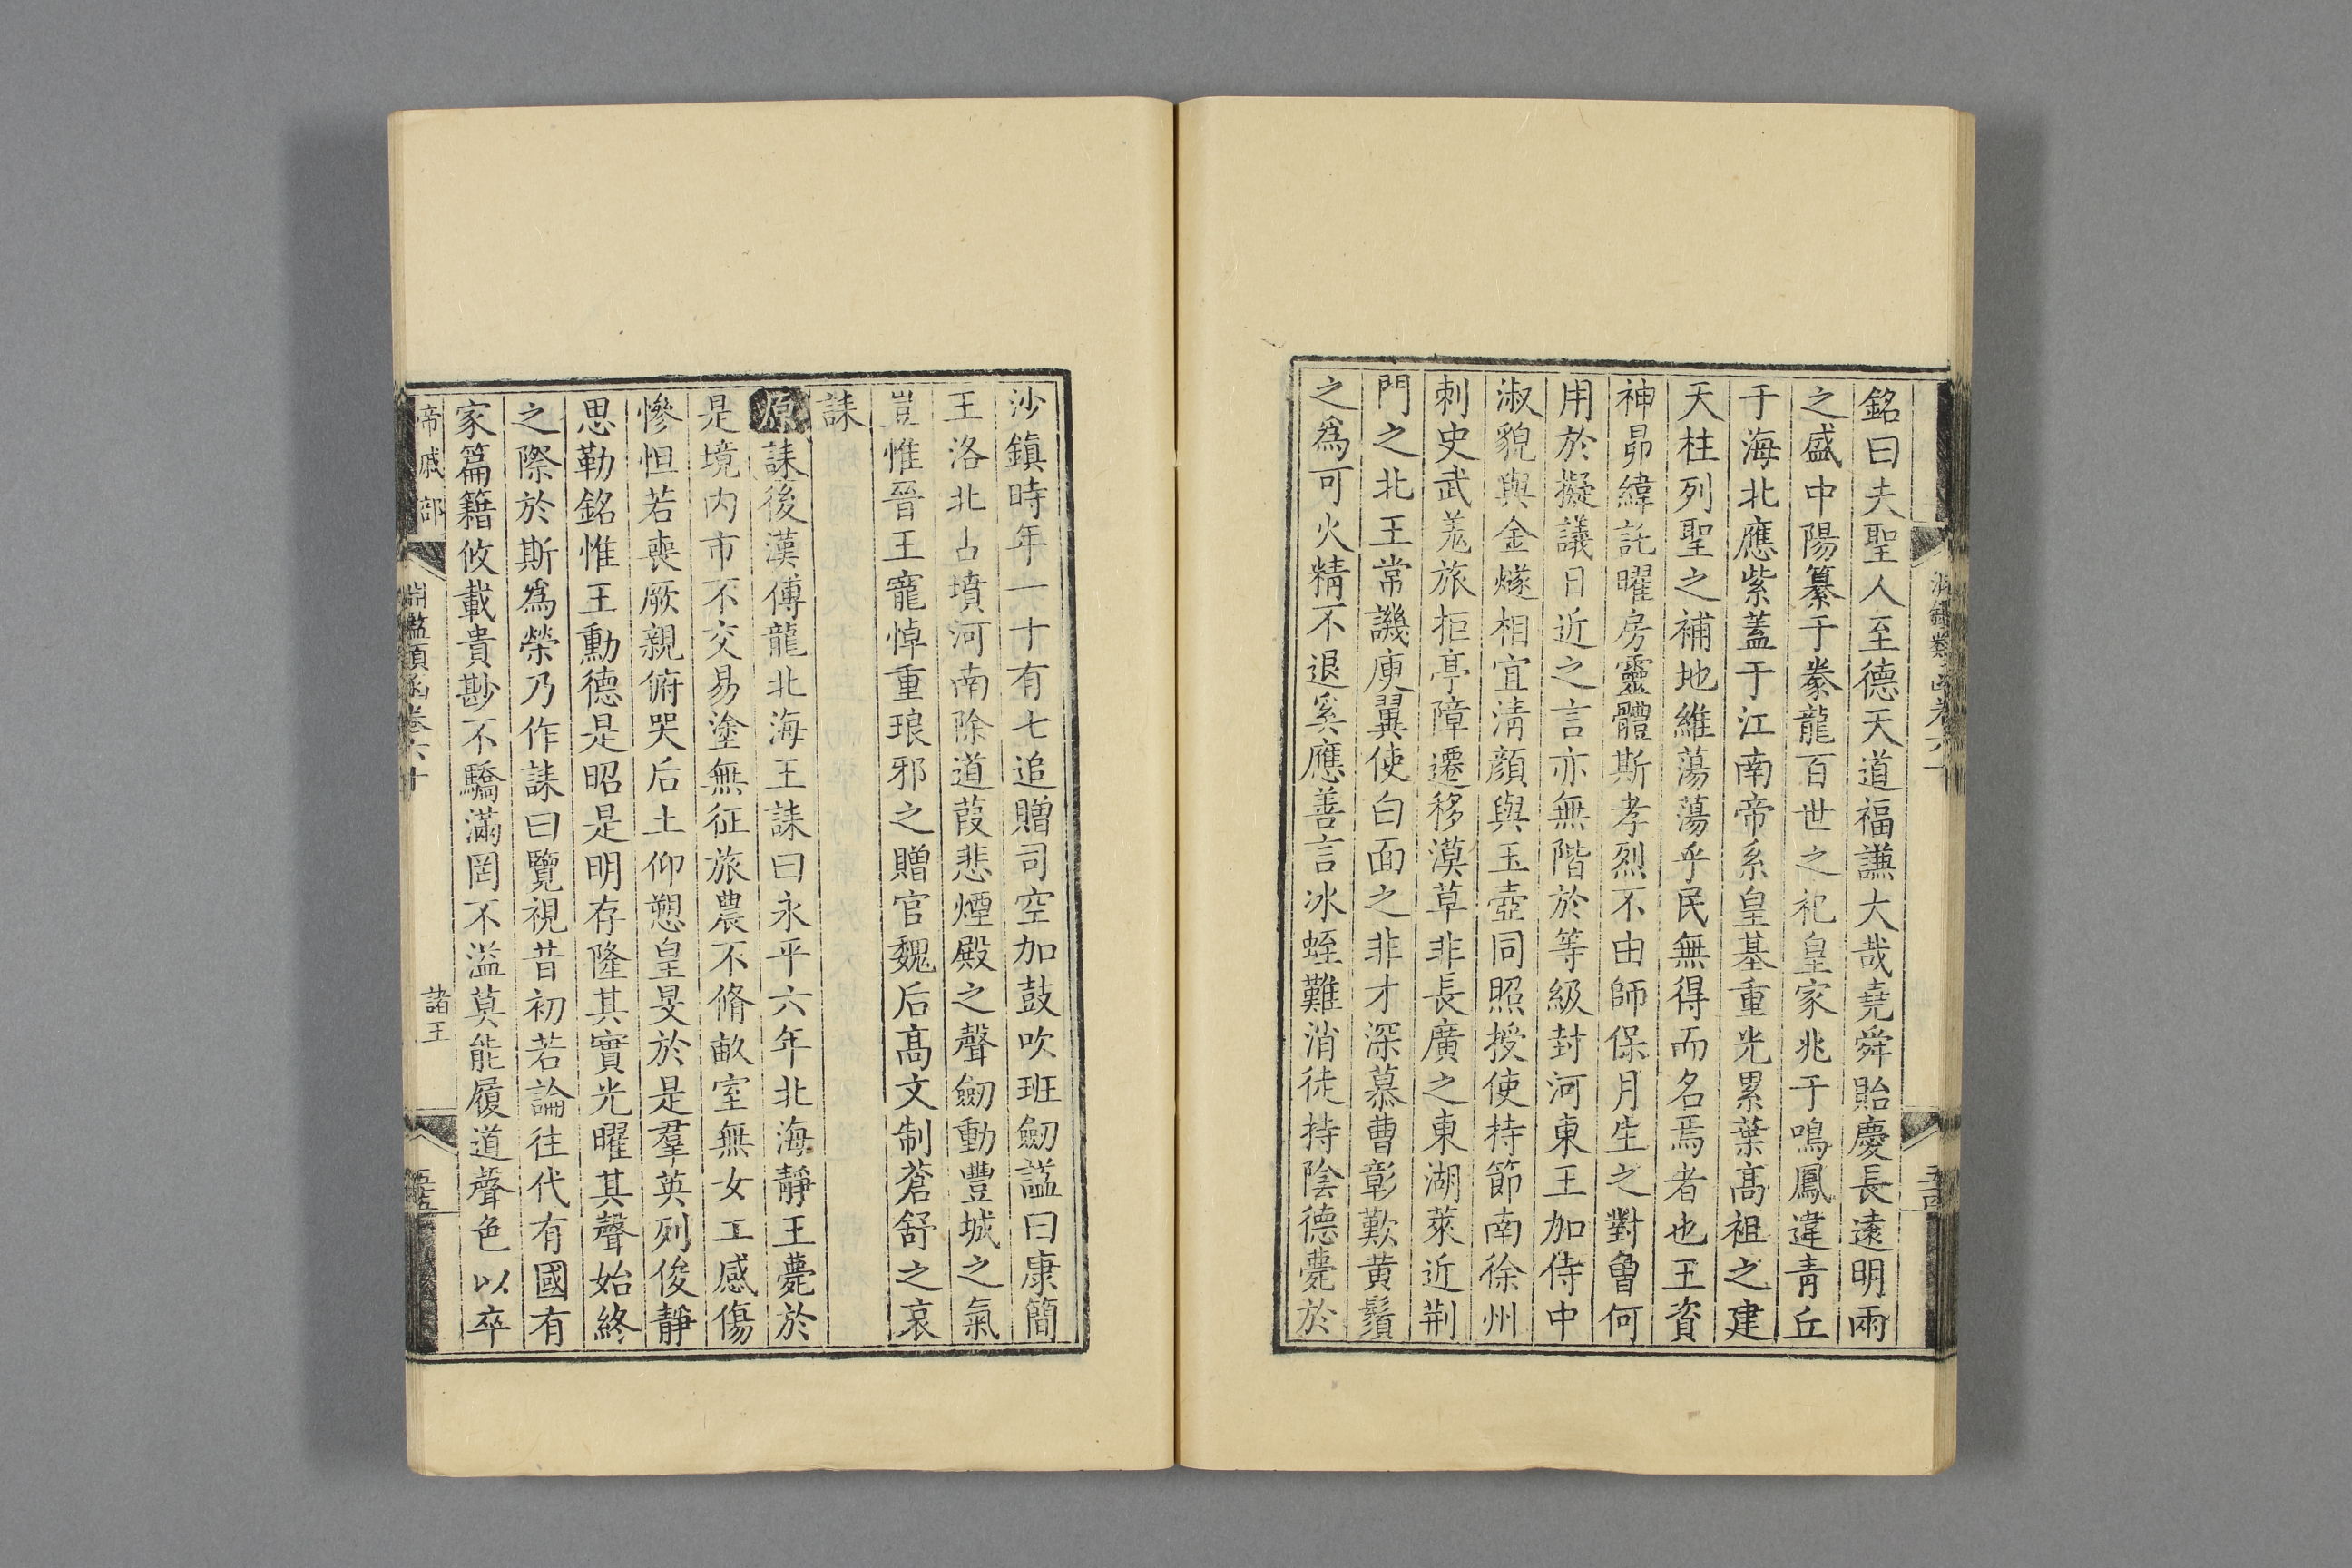 銘曰夫聖人至德天道福謙大哉堯舜貽慶長遠明兩
之盛中陽纂于豢龍百世之祀皇家兆于鳴鳳違青丘
于海北應紫蓋于江南帝系皇基重光累葉髙祖之建
天柱列聖之補地維蕩蕩乎民無得而名焉者也王資
神昴緯託曜房靈體斯孝烈不由師保月生之對魯何
用於擬議日近之言亦無階於等級封河東王加侍中
淑貌與金燧相宜淸顔與玉壺同照授使持節南徐州
刺史武羗旅拒亭障遷移漠草非長廣之東湖萊近荆
門之北王常譏庾翼使白面之非才深慕曹彰歎黄鬚
之爲可火精不退奚應善言冰蛭難消徒持陰德薨於
沙鎮時年一十有七追贈司空加鼓吹班劒諡曰康簡
王洛北占墳河南除道葭悲煙殿之聲劒動豐城之氣
豈惟晉王寵悼重琅邪之贈官魏后髙文制蒼舒之哀
誄
原誄後漢傅龍北海王誄曰永平六年北海靜王薨於
是境内市不交易塗無征旅農不脩畝室無女工感傷
慘怛若喪厥親俯哭后土仰愬皇旻於是羣英列俊靜
思勒銘惟王勳德是昭是明存隆其實光曜其聲始終
之際於斯爲榮乃作誄曰覽視昔初若論往代有國有
家篇籍攸載貴尠不驕滿罔不溢莫能履道聲色以卒
帝戚部
淵鑑類函卷六十
諸王